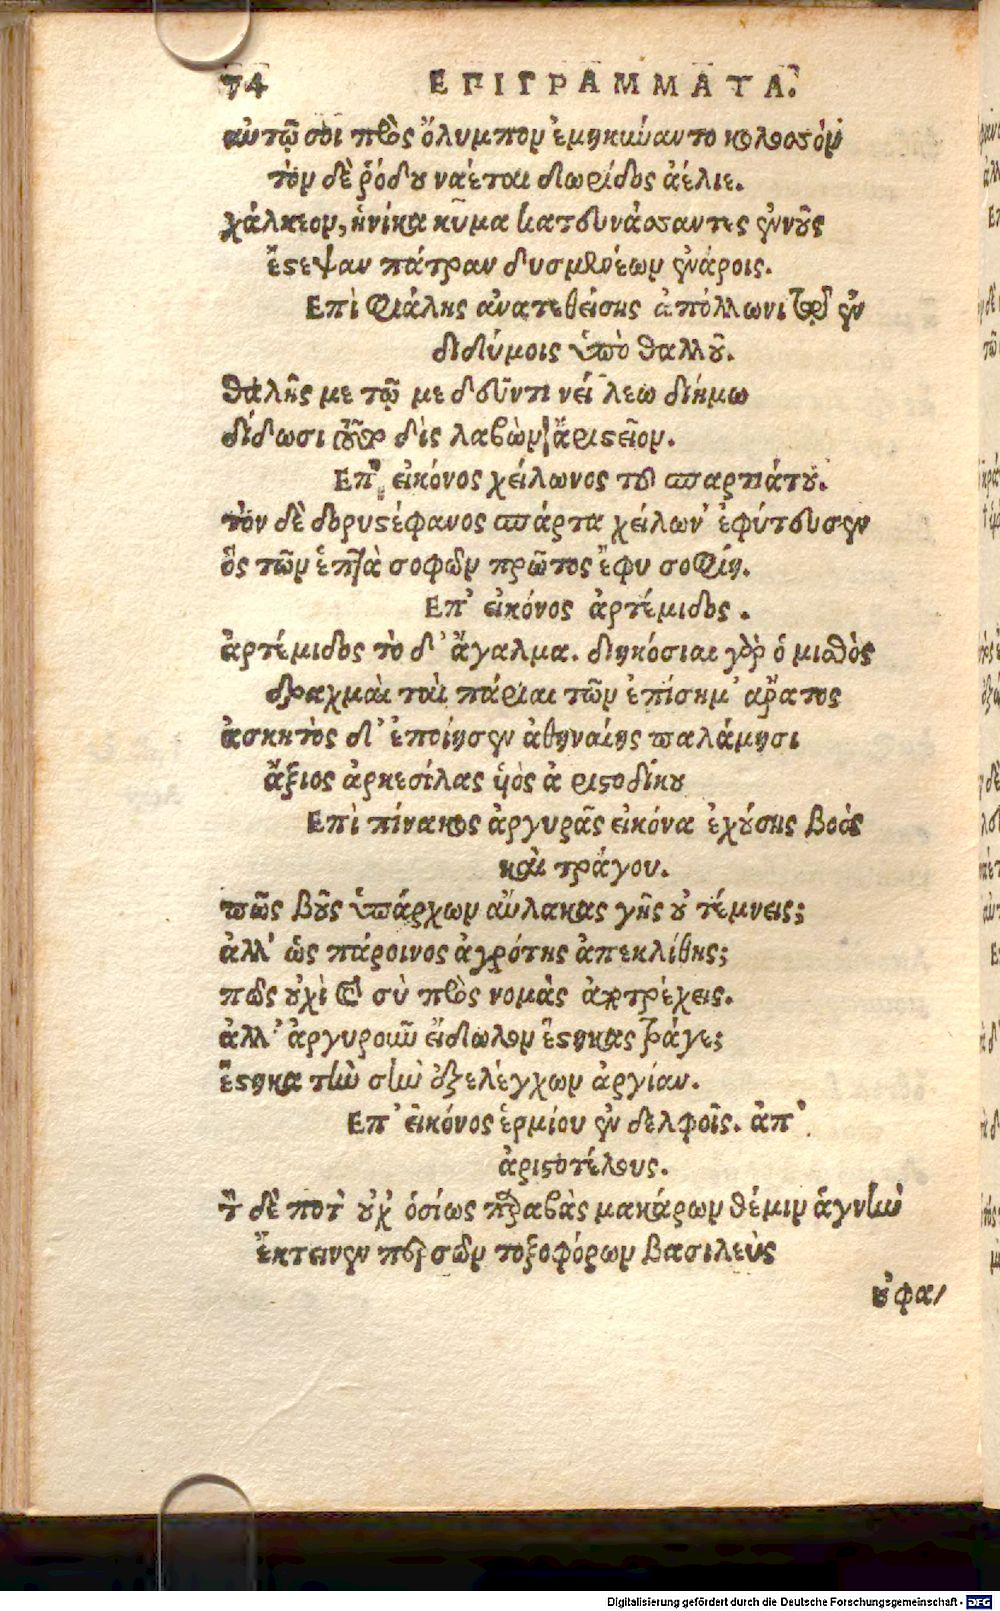 74 ΕΠΙΓΡΑΜΜΑΤΑ.
αὐτῷ σοι πρὸς ὄλυμπον ἐμηκύναντο κολοσσὸν
τὸν δὲ ῥόδου ναέται δωρίδος ἀέλιε.
χάλκεον, ἡνίκα κῦμα κατευνάσαντες ἐννοῦς
ἔστεψαν πάτραν δυσμενέων ἐνάροις.
Επὶ φιάλης ἀνατεθείσης ἀπόλλωνι τῷ ἐν
διδύμοις ὑπὸ θαλλοῦ.
θαλῆς με τῷ μεδεῦντι νείλεω δήμω
δίδωσι τοῦτο δὶς λαβὼν ἀριστεῖον.
Επ' εἰκόνος χείλωνος τοῦ σπαρτιάτου.
τὸν δὲ δορυστέφανος σπάρτα χείλων' ἐφύτευσεν
ὃς τῶν ἑπτὰ σοφῶν πρῶτος ἔφυ σοφίῃ.
Επ' εἰκόνος ἀρτέμιδος.
ἀρτέμιδος τὸ δ' ἄγαλμα. διηκόσιαι γὰρ ὁ μισθὸς
δραχμαὶ ταὶ πάριαι τῶν ἐπίσημ' ἄρατος
ἀσκητὸς δ' ἐποίησεν ἀθηναίης παλάμησι
ἄξιος ἀρκεσίλας ὑὸς ἀριστοδίκου
Επὶ πίνακος ἀργυρᾶς εἰκόνα ἐχούσης βοὸς
καὶ τράγου.
πῶς βοῦς ὑπάρχων αὔλακας γῆς οὐ τέμνεις;
ἀλλ' ὡς πάροινος ἀγρότης ἀπεκλίθης;
πῶς οὐχὶ καὶ σὺ πρὸς νομὰς ἀποτρέχεις.
ἀλλ' ἀργυροῦν εἴδωλον ἕστηκας τράγε;
ἕστηκα τὴν σὴν ἐξελέγχων ἀργίαν.
Επ' εἰκόνος ἑρμίου ἐν δελφοῖς. ἀπ'
ἀριστοτέλους.
τ δέ ποτ' οὐχ ὁσίως παραβὰς μακάρων θέμιν ἁγνὴν
ἔκτεινεν περσῶν τοξοφόρων βασιλεὺς
οὐ φα/
Digitalisierung gefördert durch die Deutsche Forschungsgemeinschaft - DFG